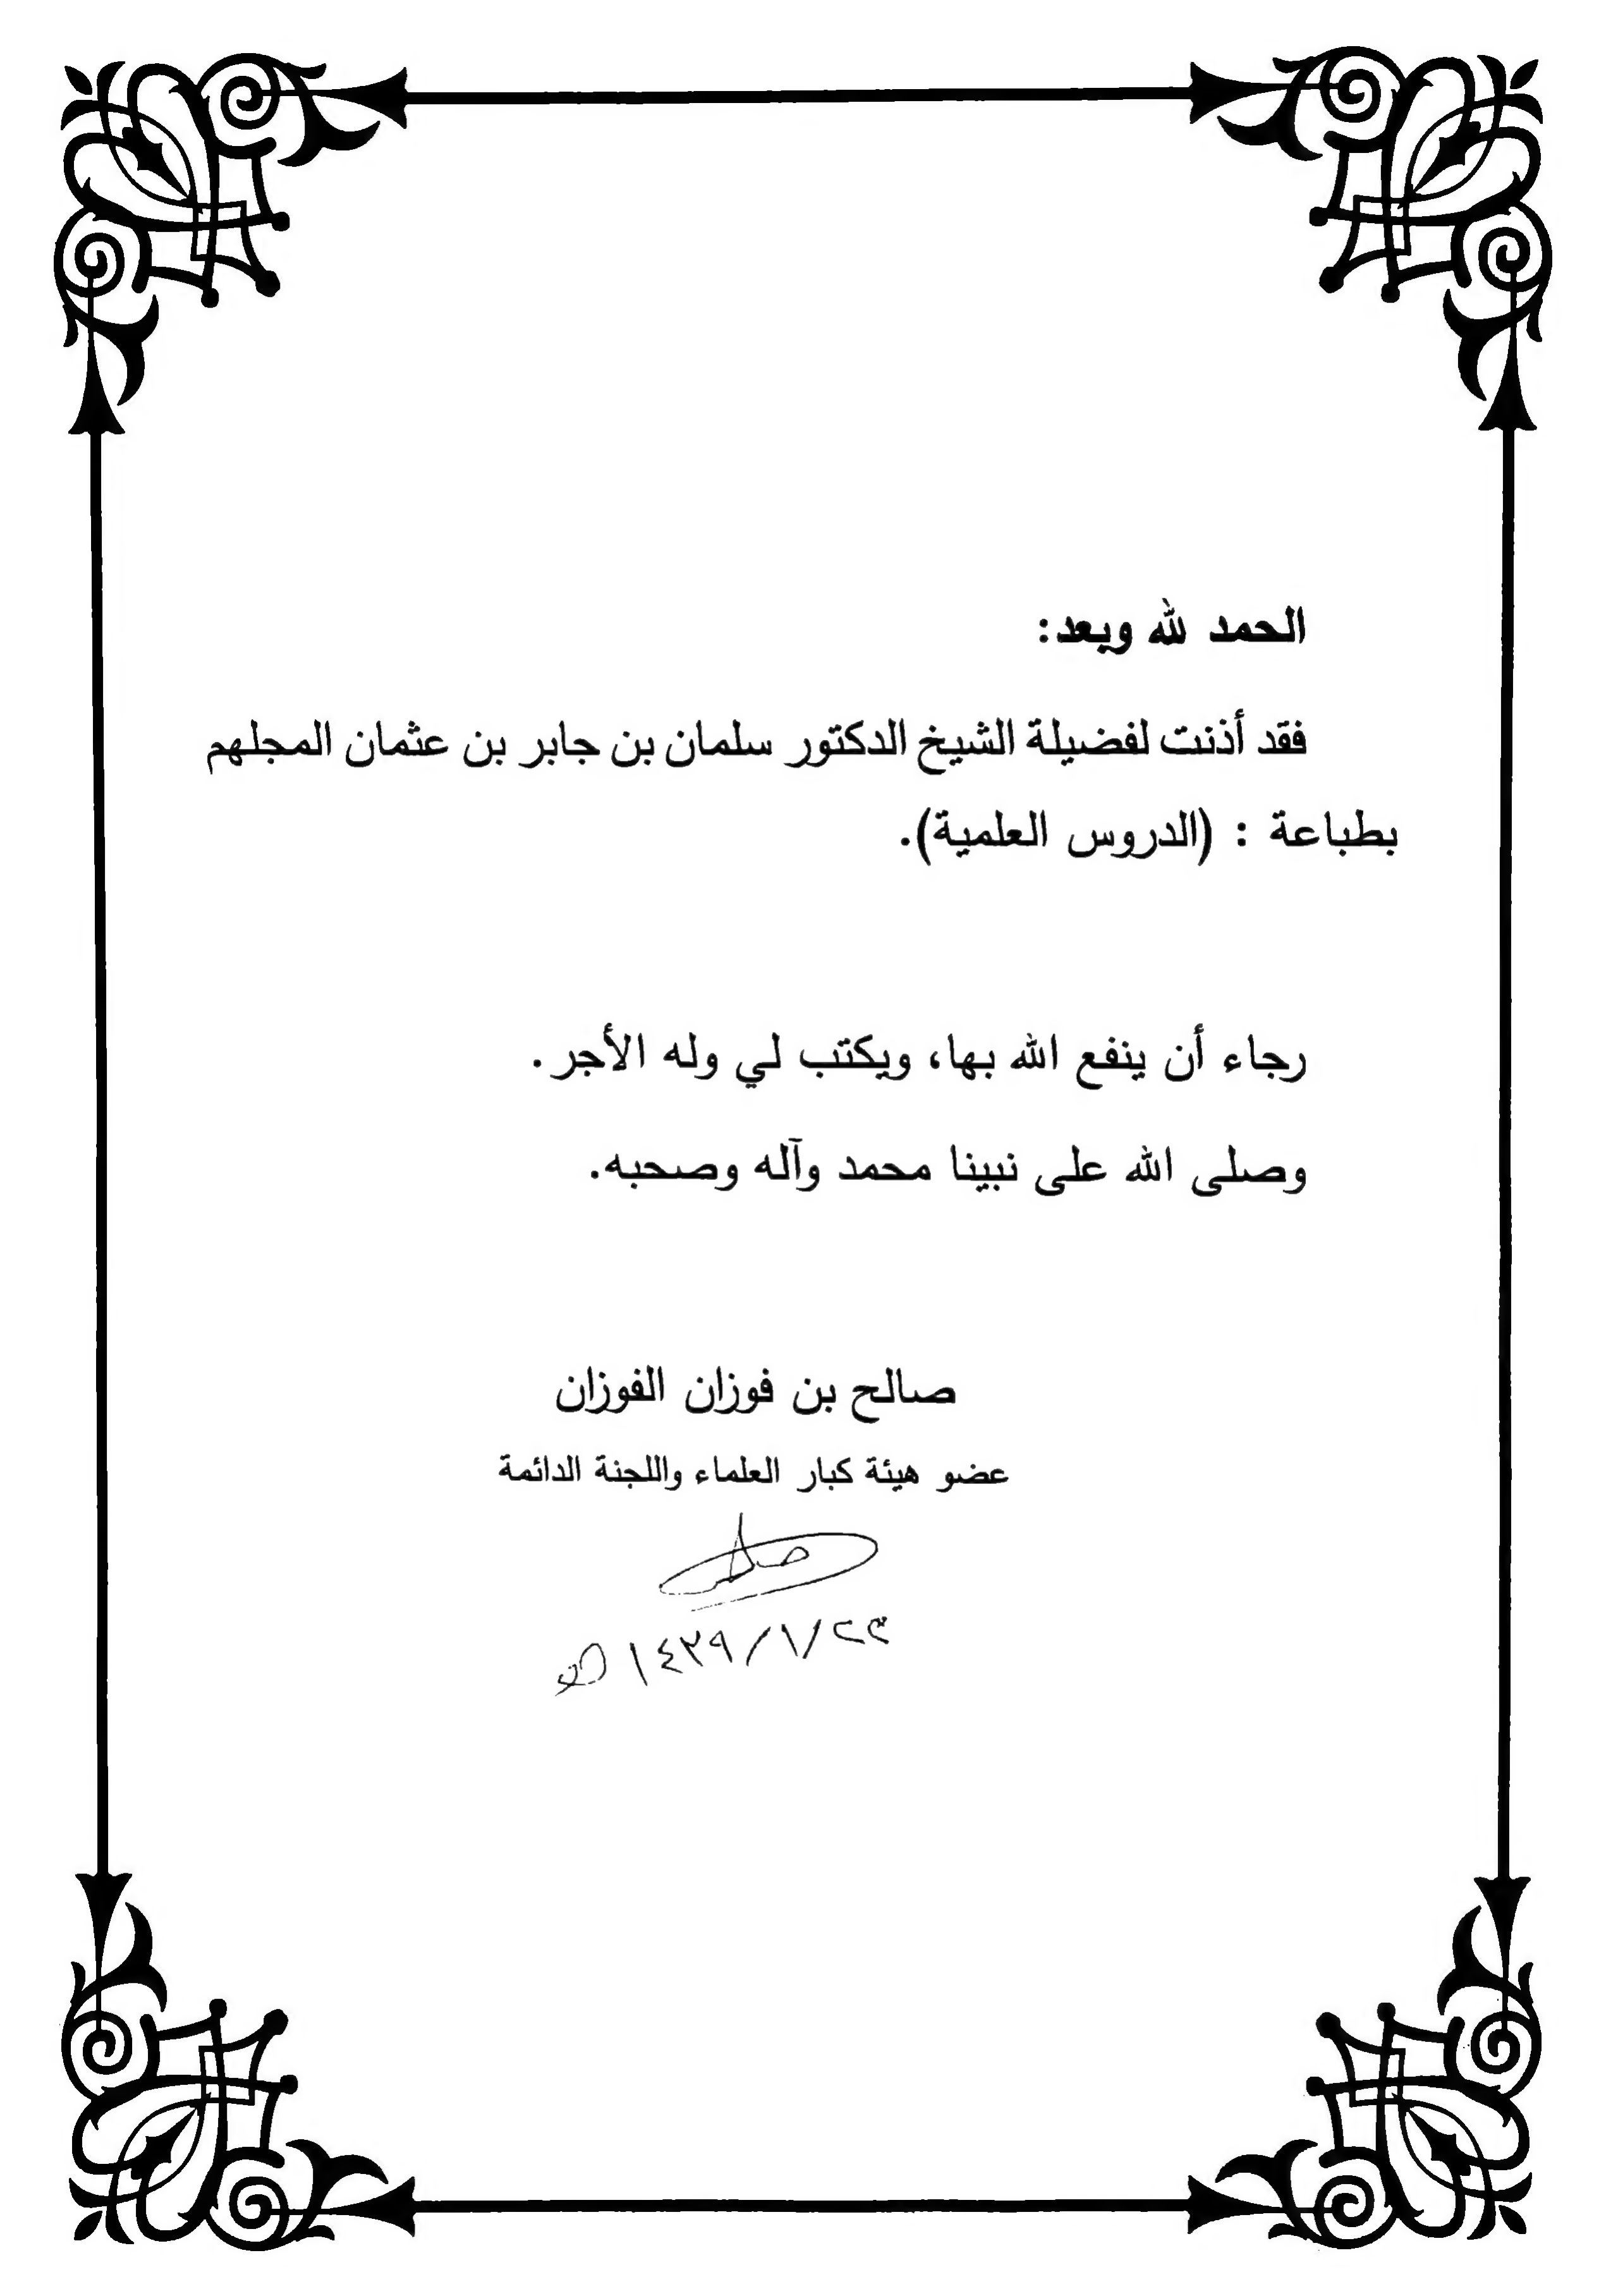 الحمد لله وبعد:
فقد أذنت لفضيلة الشيخ الدكتور سلمان بن جابر بن عثمان المجلهم
بطباعة : (الدروس العلمية).
رجاء أن ينفع الله بها، ويكتب لي وله الأجر.
وصلى الله على نبينا محمد وآله وصحبه.
صالح بن فوزان الفوزان
عضو هيئة كبار العلماء واللجنة الدائمة
/١/١٤٣٩هـ